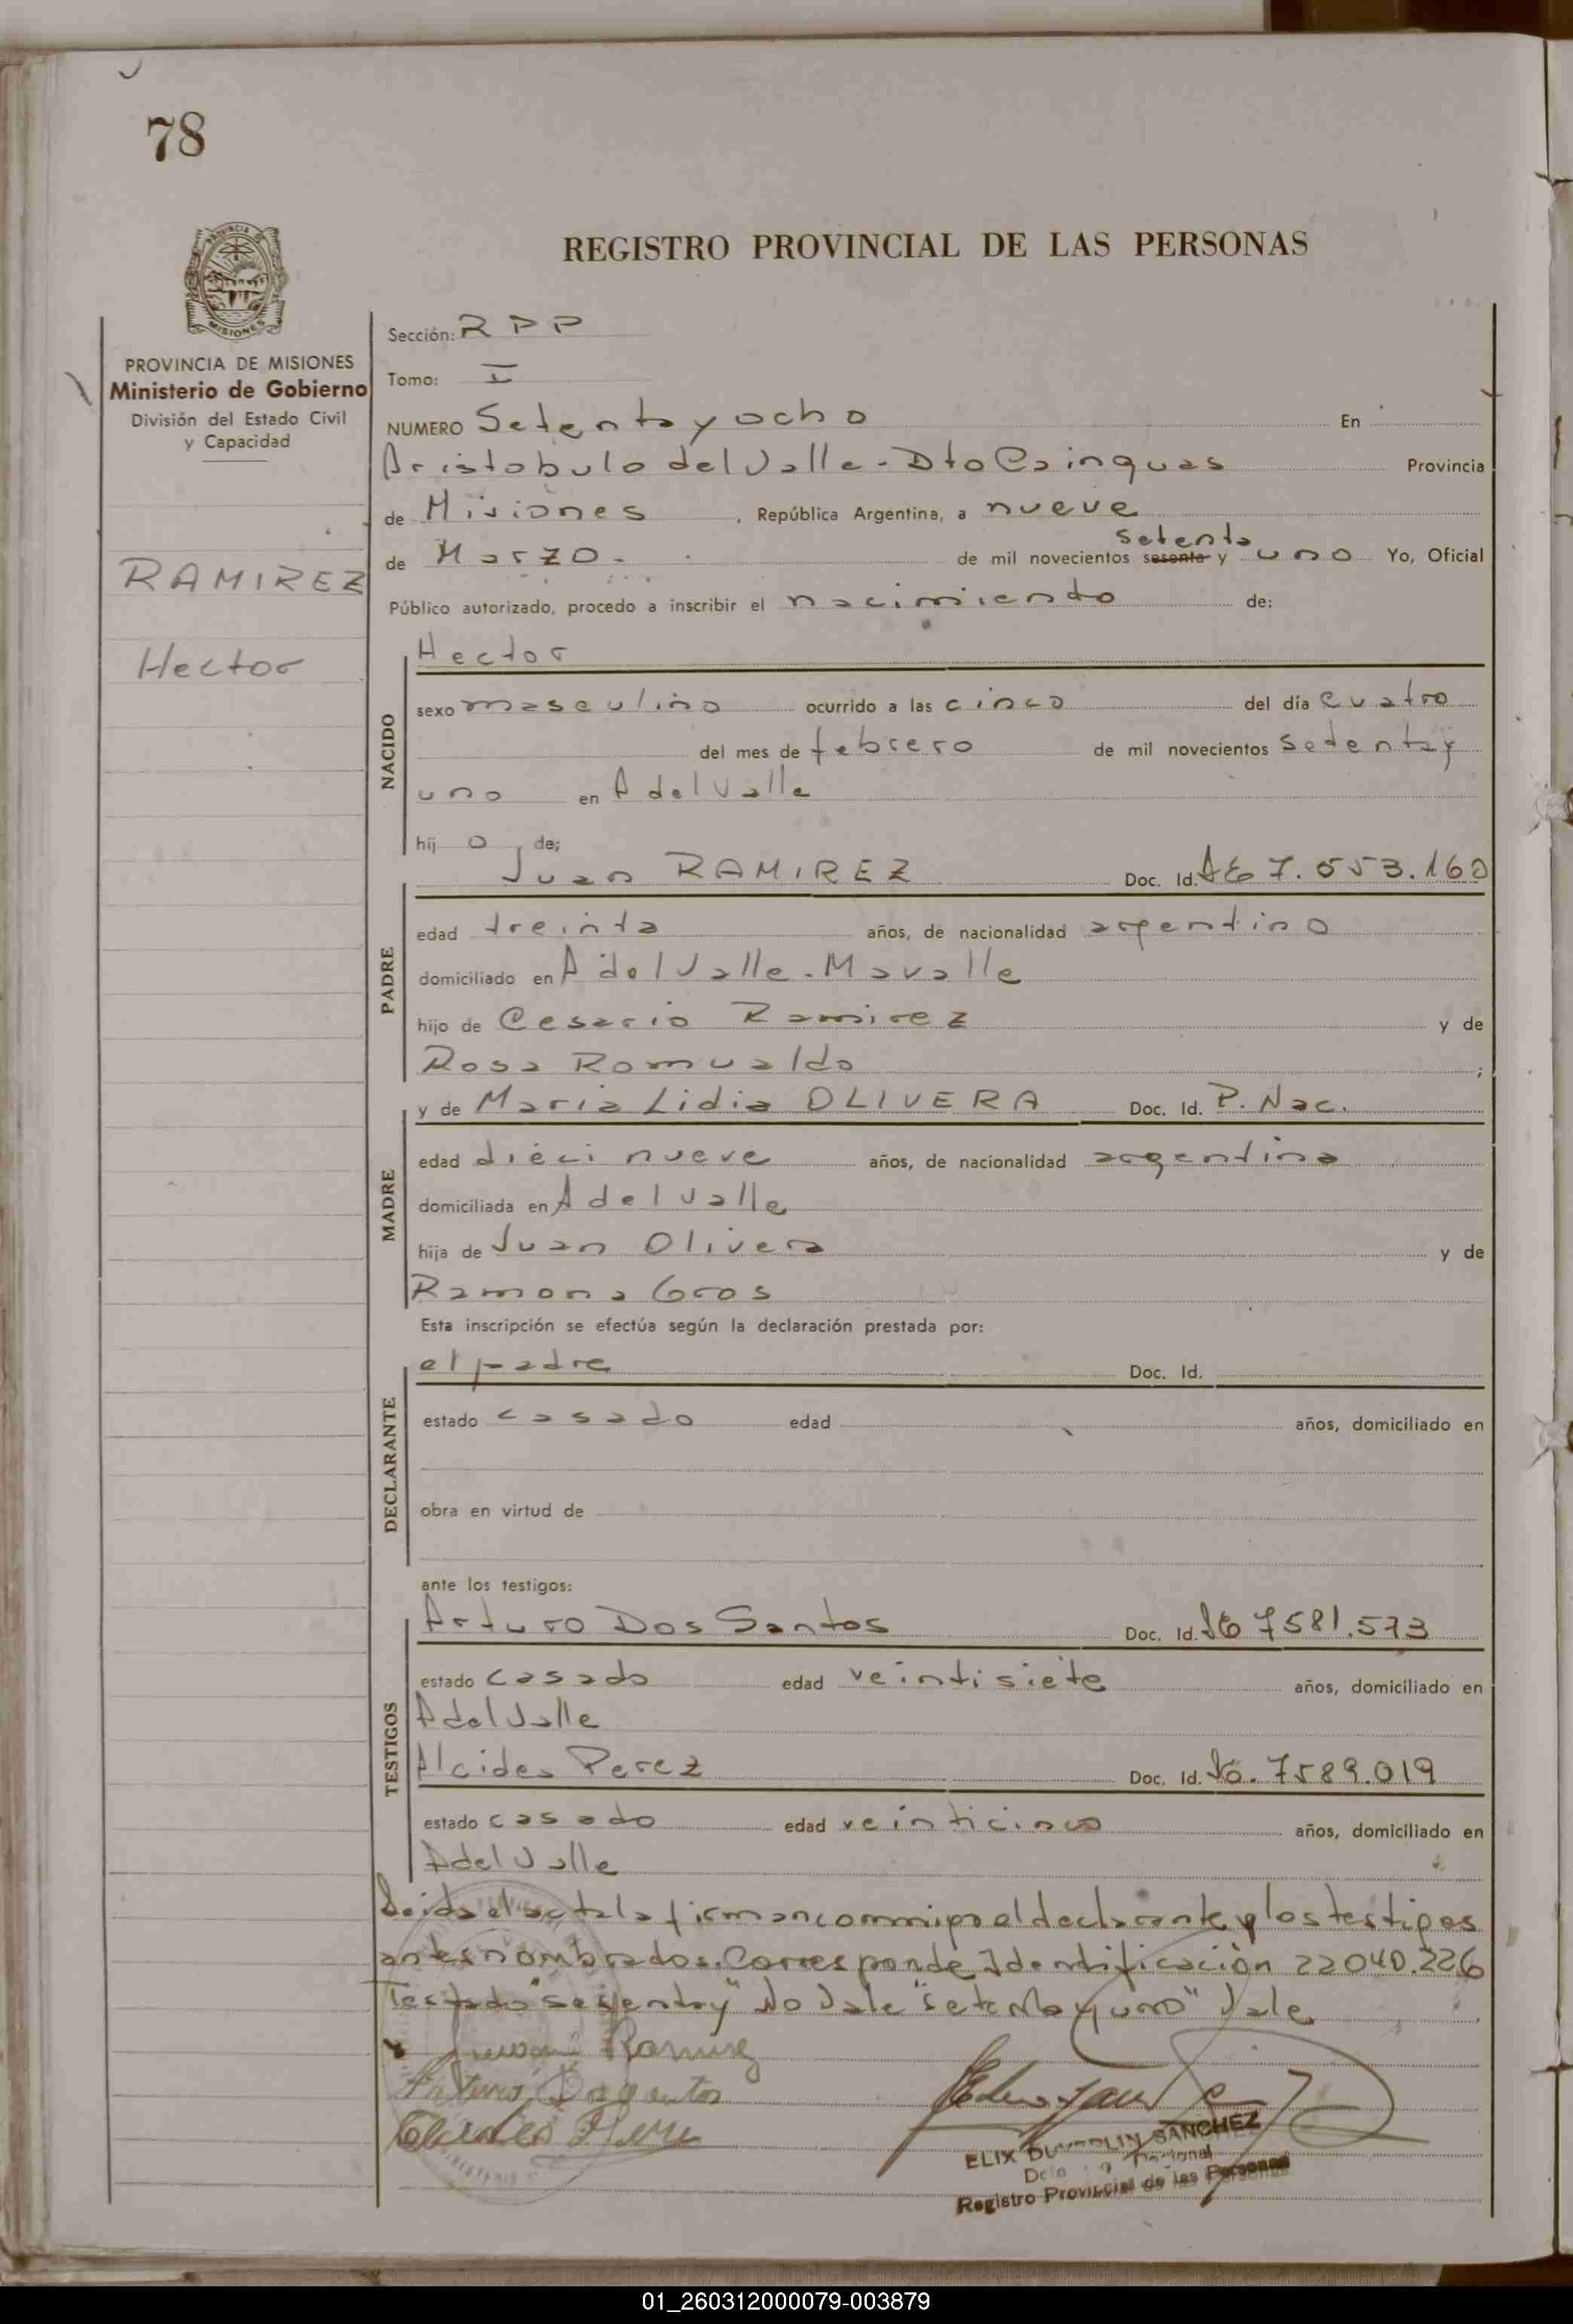 78
REGISTRO PROVINCIAL DE LAS PERSONAS
PROVINCIA DE MISIONES
Ministerio de Gobierno
División del Estado Civil
y Capacidad
RAMIREZ
Hector
Sección: R P P
Tomo: I
NUMERO Setenta y ocho En
Aristobulo del Valle - Dto Cainguas Provincia
de Misiones , República Argentina, a nueve
setenta
de Marzo - de mil novecientos sesenta y uno Yo, Oficial
Público autorizado, procedo a inscribir el nacimiento de:
NACIDO
Hector
sexo masculino ocurrido a las cinco del día cuatro
del mes de febrero de mil novecientos setenta y
uno en A del Valle
hij o de;
PADRE
Juan RAMIREZ Doc. Id. 7.553.160
edad treinta años, de nacionalidad argentino
domiciliado en A del Valle - Mavalle
hijo de Cesario Ramirez y de
Rosa Romualdo ;
MADRE
y de Maria Lidia OLIVERA Doc. Id. P. Nac.
edad dieci nueve años, de nacionalidad argentina
domiciliada en A del Valle
hija de Juan Olivera y de
Ramona Gros
Esta inscripción se efectúa según la declaración prestada por:
DECLARANTE
el padre Doc. Id.
estado casado edad años, domiciliado en
obra en virtud de
ante los testigos:
TESTIGOS
Arturo Dos Santos Doc. Id. 7581.573
estado casado edad veintisiete años, domiciliado en
A del Valle
Alcides Perez Doc. Id. 7589.019
estado casado edad veinticinco años, domiciliado en
A del Valle
Leida el acta la firman conmigo el declarante y los testigos
antes nombrados. Corresponde Identificación 22040.226
Testado "sesenta y" No Vale "setenta y uno" Vale
Juan Ramirez
SANCHEZ
Registro Provincial de las Personas
01_260312000079-003879